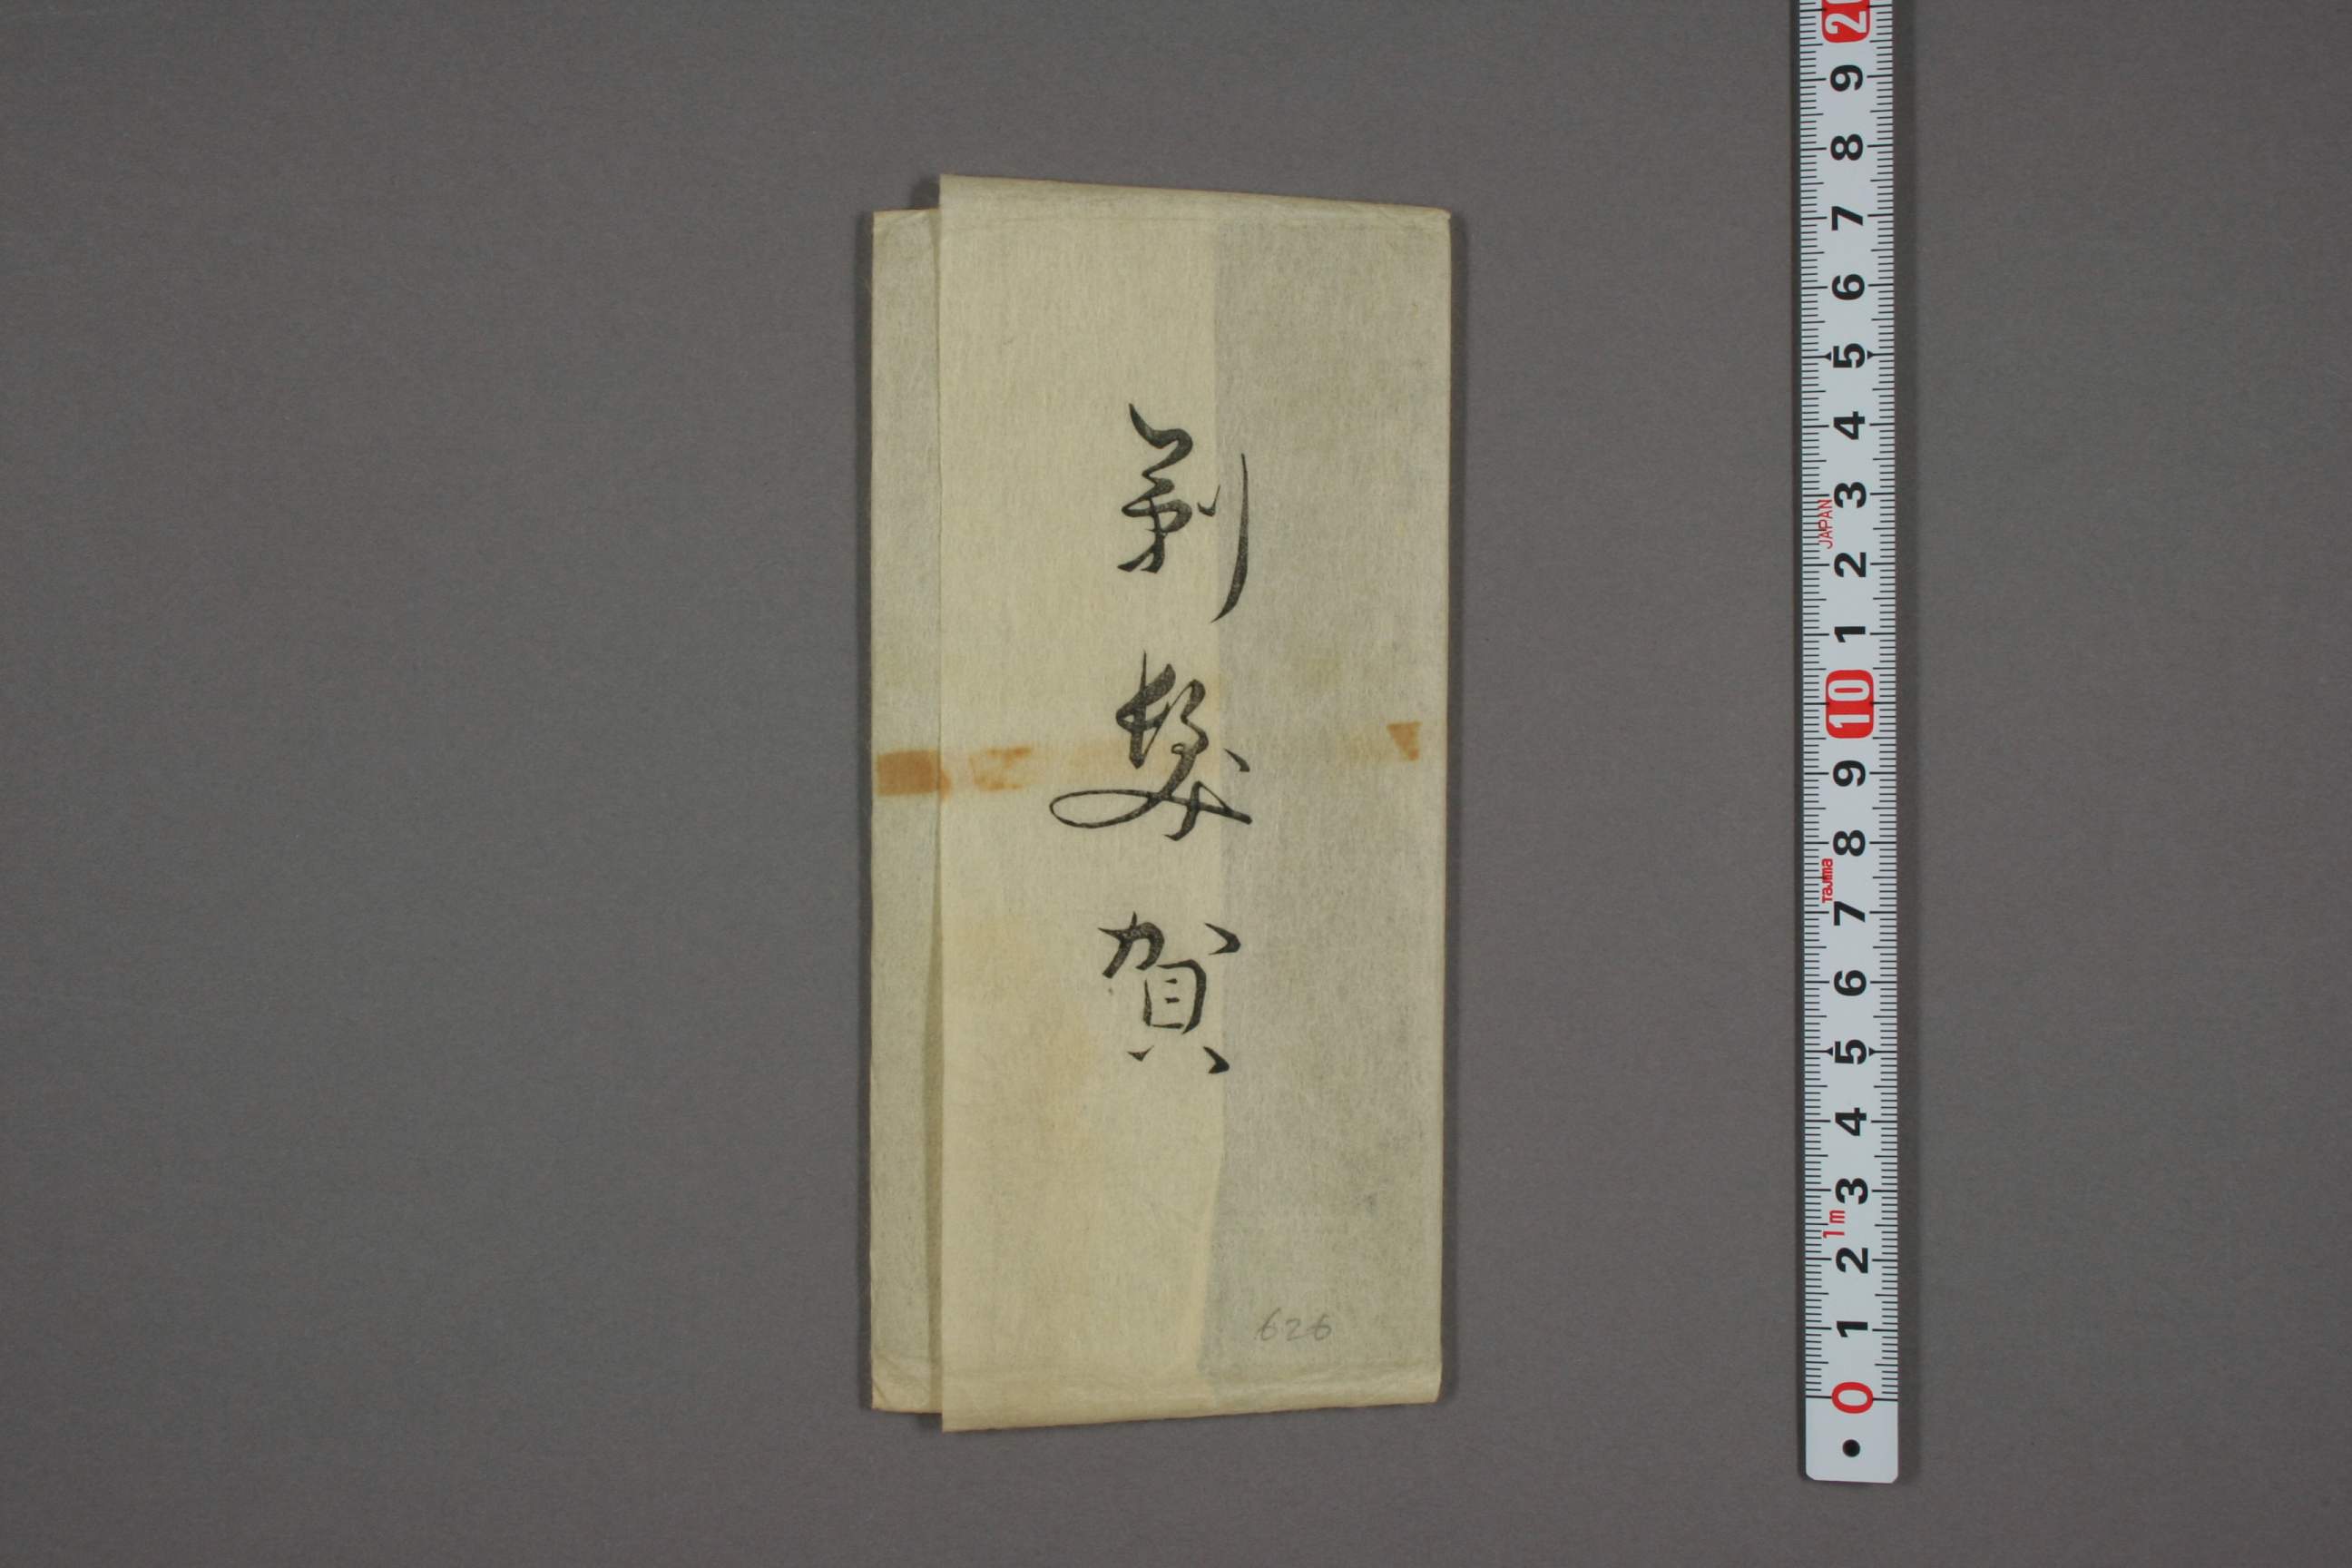 剃髪賀
626
20
9
8
7
6
5
4
3
2
1
10
9
8
7
6
5
4
3
2
1
0
JAPAN
Tajima
1m